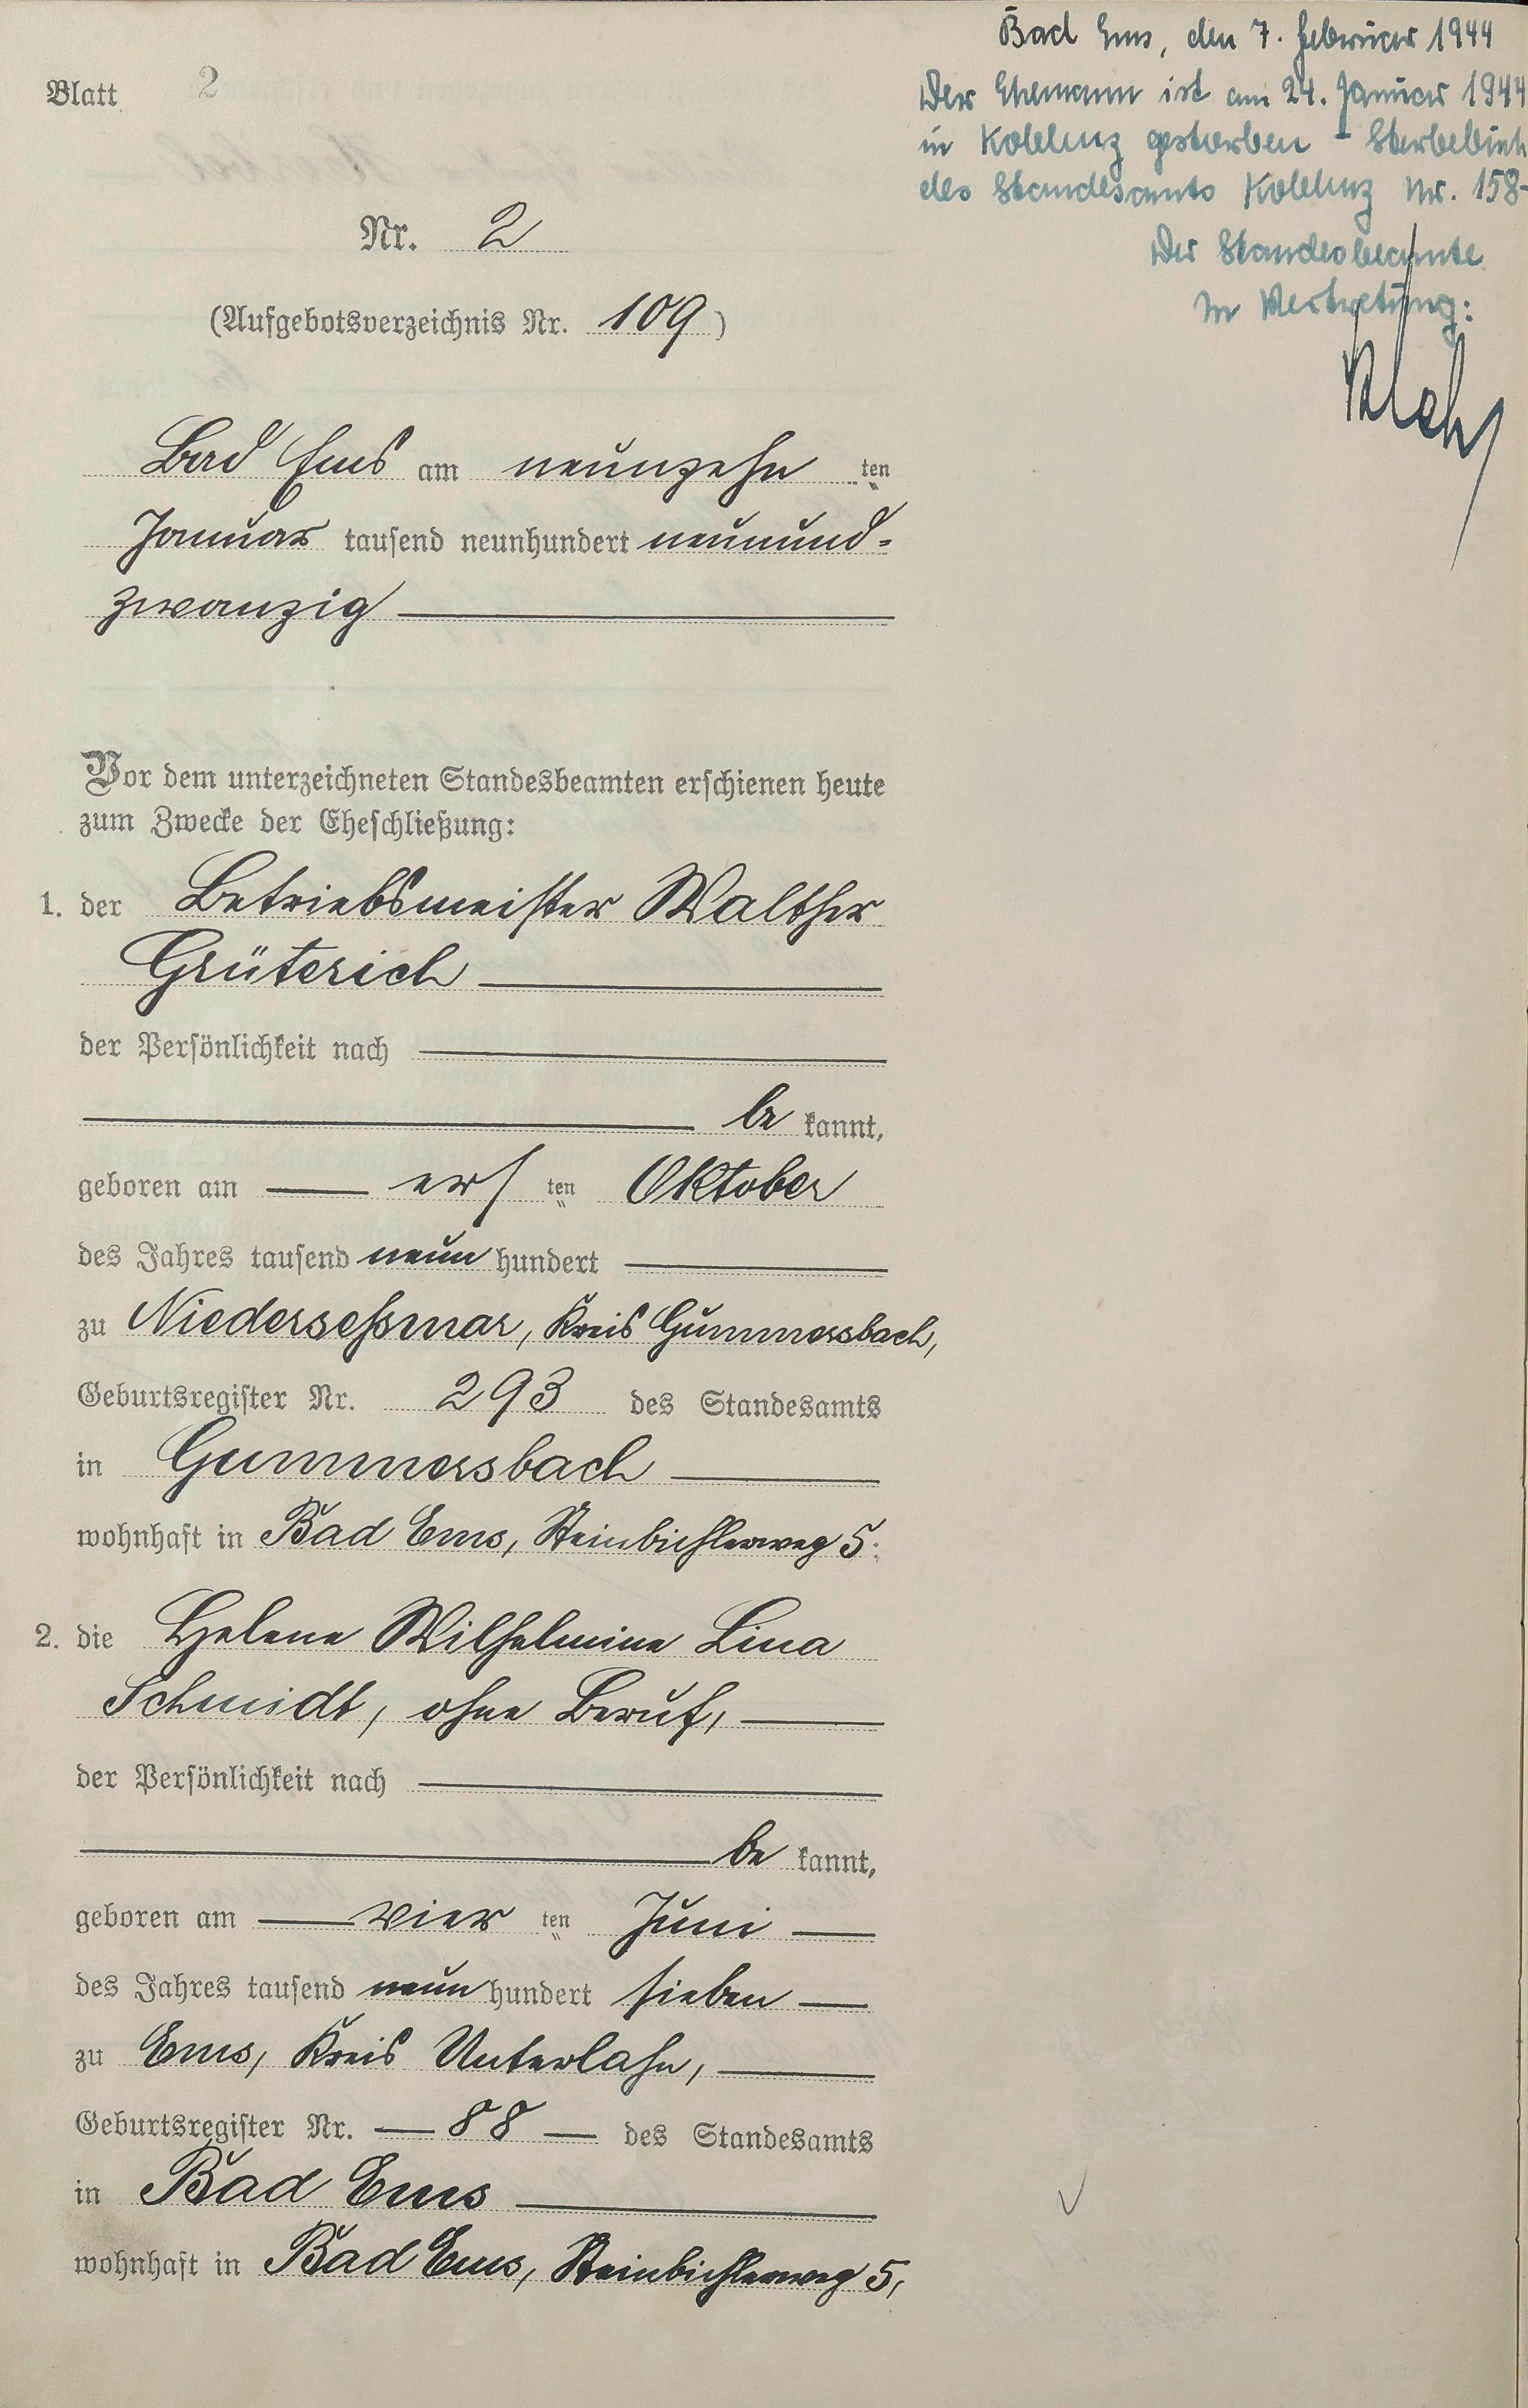 Blatt 2
Nr. 2
(Aufgebotsverzeichnis Nr. 109)
Bad Ems am neunzehn ten
Januar tausend neunhundert neunund-
zwanzig
Vor dem unterzeichneten Standesbeamten erschienen heute
zum Zwecke der Eheschließung:
1. der Betriebsmeister Walther
Grüterich
der Persönlichkeit nach
be kannt,
geboren am ers ten Oktober
des Jahres tausend neun hundert
zu Niederseßmar, Kreis Gummersbach,
Geburtsregister Nr. 293 des Standesamts
in Gummersbach
wohnhaft in Bad Ems, 5.
2. die Helene Wilhelmine Lina
Schmidt, ohne Beruf,
der Persönlichkeit nach
be kannt,
geboren am vier ten Juni
des Jahres tausend neun hundert sieben
zu Ems, Kreis Unterlahn,
Geburtsregister Nr. 88 des Standesamts
in Bad Ems
wohnhaft in Bad Ems, 5,
Bad Ems, den 7. Februar 1944
Der Ehemann ist am 24. Januar 1944
in Koblenz gestorben - Sterbebuch
des Standesamts Koblenz Nr. 158-
Der Standesbeamte
In Vertretung: